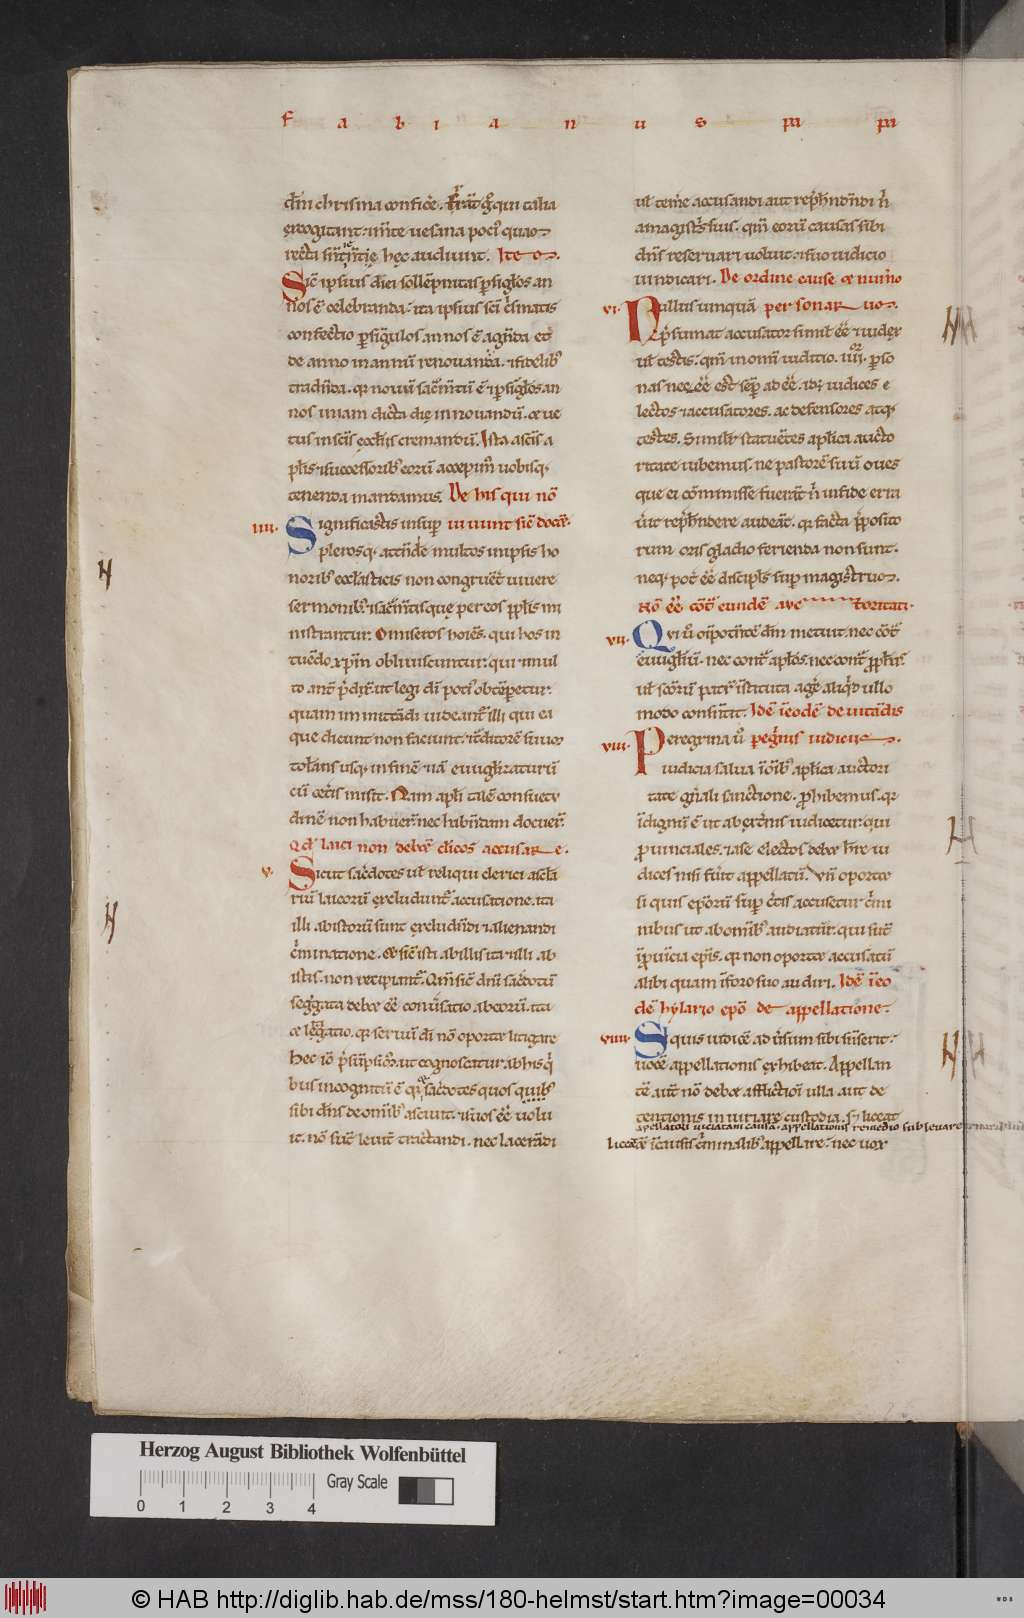 f a b i a n u s pa pa
dn̄i chrisma confice. Errāt g͛ qui talia
excogitant. ⁊ m̄te uesana poci᷒ quā
recta hęc audiunt. Ite
Sic ipsius diei sollēpnitas ꝑ sigłos an
nos ē celebranda. ita ipsius sc̄i c̓smatis
confectio ꝑ singulos annos ē agn̄da. et
de anno in annū renouanda. ⁊ fidelib᷒
tradn̄da. qr̄ nouū sac̄m̄tū ē ⁊ ꝑ sigłos an
nos iam dicta dię innouandū. ⁊ ue
tus in sc̄is ęcclīis cremandū. Ista a sc̄is a
p̄lis ⁊ successorib᷒ eorū accepim᷒ uobisq;
tenenda mandamus. De his qui nō
iiii. Significastis insup̄ uiuunt sic̄ docēt.
plerosq; multos impositis ho
norib᷒ eccl̄asticis non congruēt̄ uiuere
sermonib᷒. ⁊ sac̄m̄tisquę per eos pp̄lis mi
nistrantur. O miseros hoīes. qui hos in
tuēdo xp̄m obliuiscuntur. qui
to ant̄ ut legi dī poci᷒ obtēꝑetur.
quam imitādi uideant̄ illi qui ea
que dicunt non faciunt. ⁊ t̄ditorē suū
tolīans usq; in finē. ⁊ iā euuḡlizaturū
cū cet̄is misit. Nam ap̄li talē consuetu
dinē non habuerūt. nec habn̄dam docuer̄.
Qd̄ laici non debēt clīcos accusare.
v. Sicut sac̄dotes uł reliqui clerici a scła
riū laicorū excludunt̄ accusatione. ita
illi ab istorū sunt excludn̄di ⁊ alienandi
c̓minatione. Et sic̄ isti ab illis ita ⁊ illi ab
istis. non recipiant̄. Qm̄ sic̄ dn̄i sac̄dotū
seg̓gata debet eē con̄uersatio ab eorū. ita
et legatio. qr̄ seruū dī nō oportet litigare
Hec iō ut cognoscatur ab his
bus incognitū ē. qr̄ sac̄dotes quos quib᷒
sibi dn̄s de omīb᷒ asciuit. ⁊ suos eē uolu
it. nō sunt̄ leuit̄ tractandi. nec lacerādi
uł tem̄e accusandi aut rep̄hn̄dn̄di n̄
a magistīs suis. qm̄ eorū causas sibi
dn̄s reseruari uoluit. ⁊ suo iudicio
uindicari. De ordine cause et num̄o
vi. Nullus umquā personarum.
p̄sumat accusator simul eē ⁊ iudex
uł testis. qm̄ in omī iuditio. iiii. ꝑso
nas necē eē est semp̄ adeē. idē iudices e
lectos ⁊ accusatores. ac defensores atq;
testes. Similit̄ statuētes apl̄ica aucto
ritate iubemus. ne pastorē suū oues
que ei cōmisse fuerāt n̄ in fide erra
u̓it rep̄hendere audeāt. qr̄ facta p̄posito
rum oris gladio ferienda non sunt.
neq; pot̄ eē discipłs sup̄ magistrum.
Nō eē cōt̄ eundē auctoritati.
vii. Qui u̓ oīpotn̄tē dm̄ metuit. nec cōt̄
euuḡliū. nec cont̄ apłos. nec cont̄ pp̄hās.
uł sc̄orū patrū īstituta ag̓e aliq̓d ullo
modo consn̄tit. Idē ī eodē de uitādis
viii. Peregrina u̓ peg̓nis iudiciis.
iudicia salua ī omīb᷒ apl̄ica auctori
tate gn̄ali sanctione. ꝓhibemus. qr̄
īdignū ē ut ab ext̓nis iudicetur. qui
ꝓuinciales. ⁊ a se electos debet hr̄e iu
dices nisi fūit appellatū. Vn̄ oportet
si quis ep̄orū sup̄ c̓tis accusetur c̓mi
nibus ut ab omīb᷒ audiatur. qui sunt̄
ī ꝓuīcia ep̄is. qr̄ non oportet accusatū
alibi quam ī foro suo audiri. Idē ī eo
dē hylario epō de appellatione.
viiii. Si quis iudicē adu̓sum sibi sn̄serit.
uocē appellationis exhibeat. Appellan
tē aut̄ nō debet afflictioī ulla aut de
tentionis iniuriare custodia. s; liceat
apellatori uiciatam causā. appellationis remedio subleuare
liceat ī causis c̓minalib᷒ appellare. nec uox
Herzog August Bibliothek Wolfenbüttel
Gray Scale
0 1 2 3 4
© HAB http://diglib.hab.de/mss/180-helmst/start.htm?image=00034